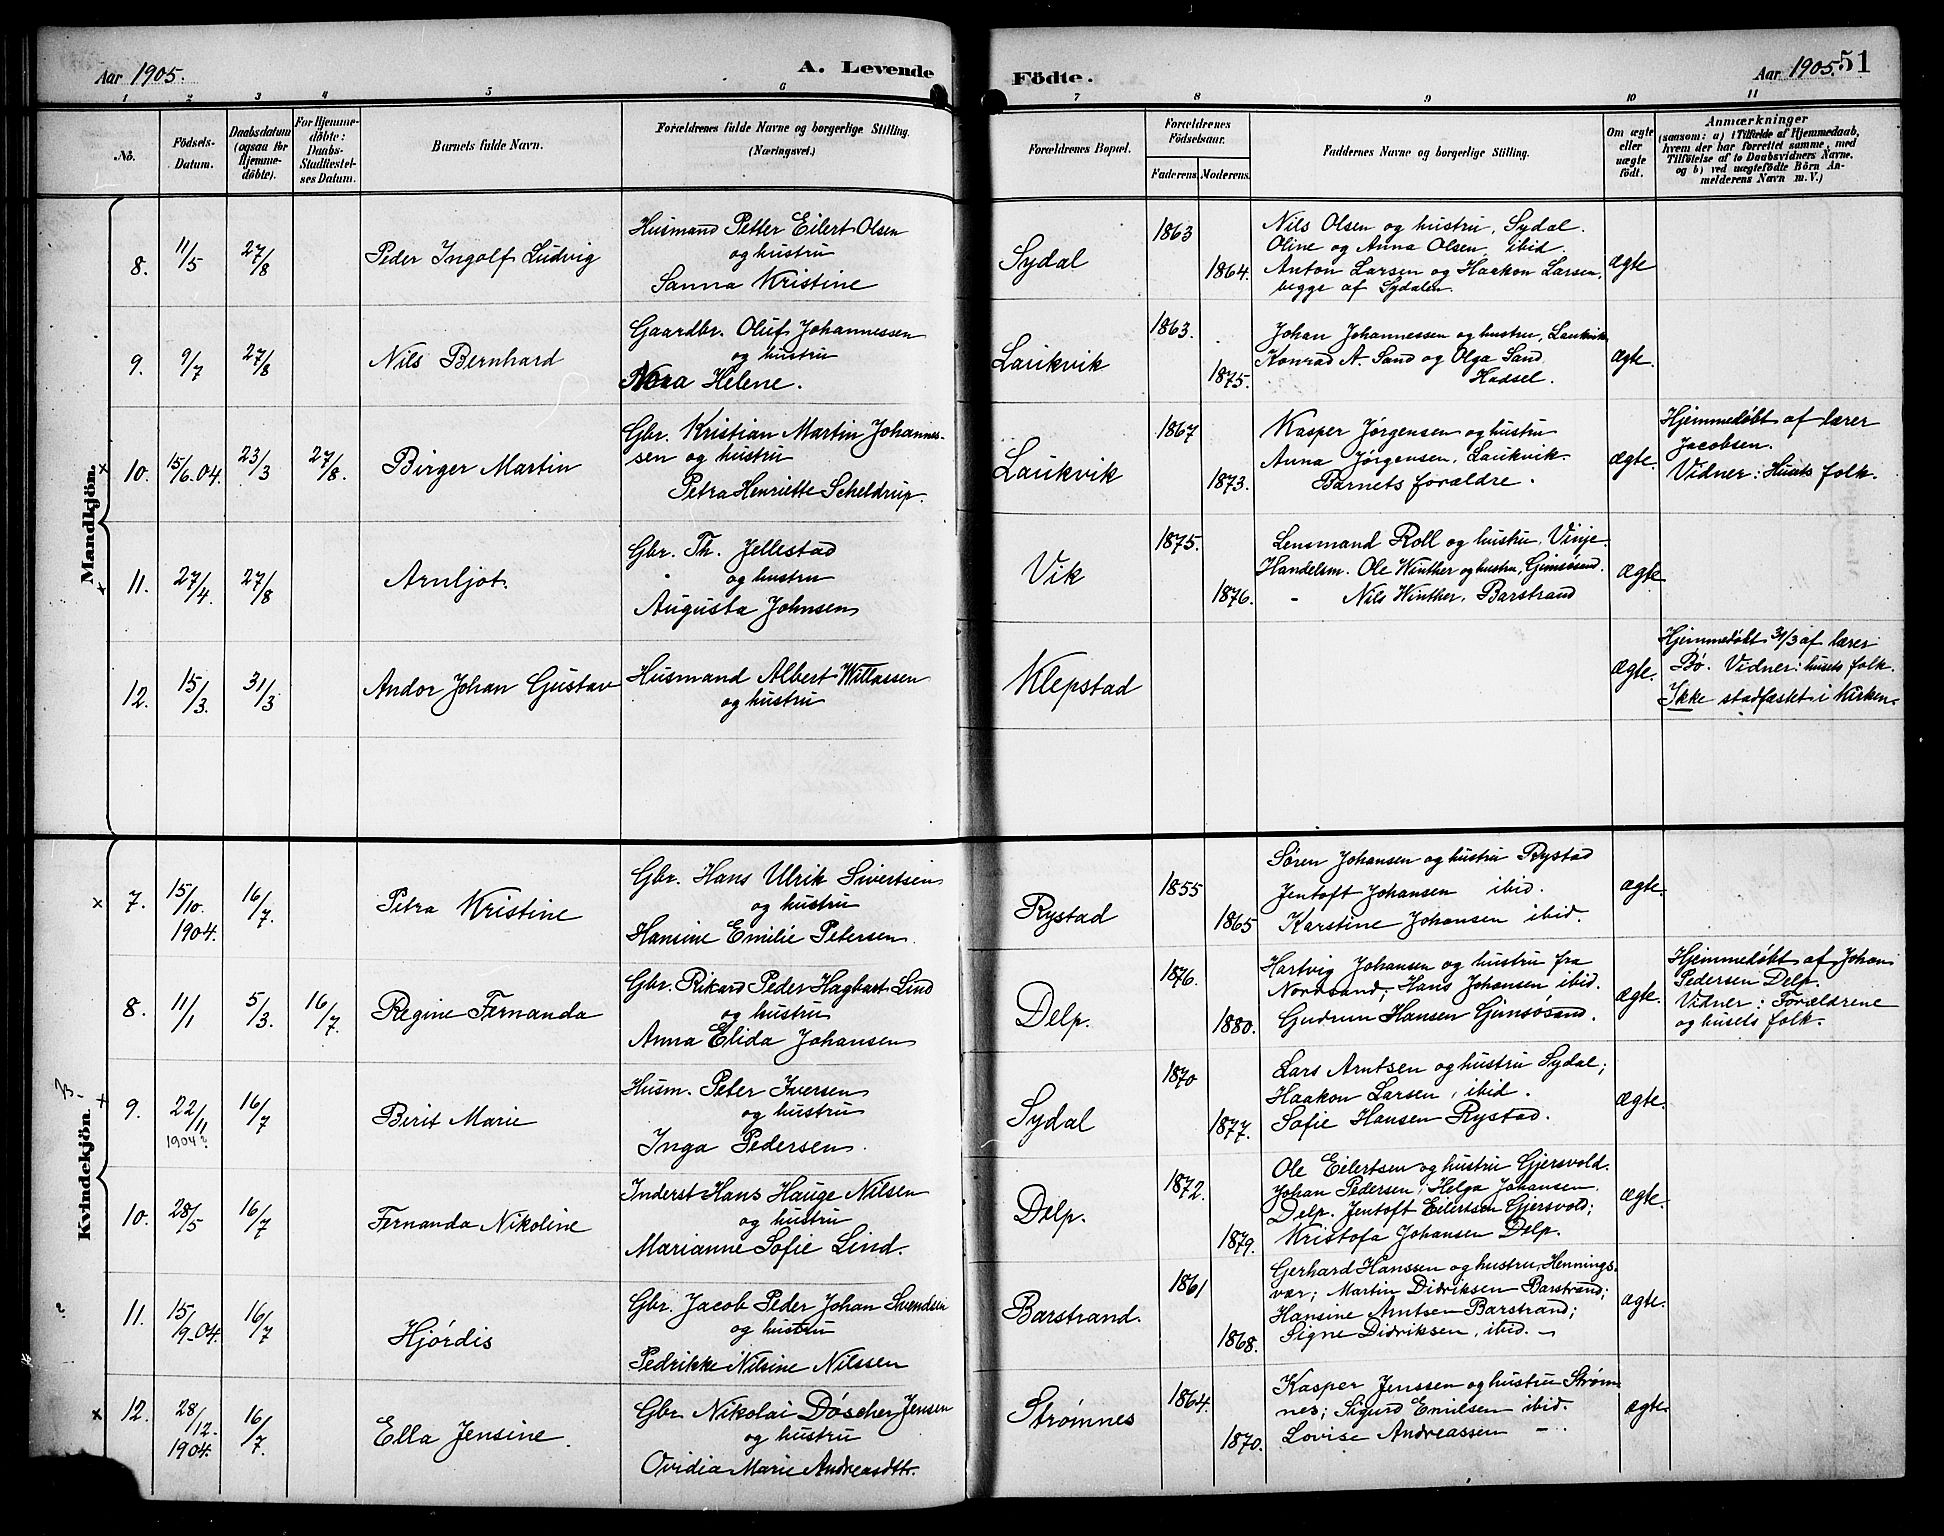 Aar 1905.
A. Levende Födte.
Aar 1905. 51
1 2 3 4 5 6 7 8 9 10 11
No.
Födsels-
Datum.
Daabsdatum
(ogsaa for
Hjemme-
döbte).
For Hjemme-
döbte:
Daabs-
Stadfæstel-
ses Datum.
Barnets fulde Navn.
Forældrenes fulde Navne og borgerlige Stilling.
(Næringsvei.)
Forældrenes Bopæl.
Forældrenes
Födselsaar.
Faderens. Moderens.
Faddernes Navne og borgerlige Stilling.
Om ægte
eller
uægte
födt.
Anmærkninger
(saasom: a) i Tilfælde af Hjemmedaab,
hvem der har forrettet samme, med
Tilföielse af to Daabsvidners Navne,
og b) ved uægtefödte Börn An-
melderens Navn m. V.)
Mandkjön.
8. 11/5 27/8 Peder Ingolf Ludvig
Husmand Petter Eilert Olsen
og hustru
Sanna Kristine
Sydal
1863
1864.
Nils Olsen og hustru, Sydal.
Oline og Anna Olsen, ibid.
Anton Larsen og Haakon Larsen,
begge af Sydalen.
ægte
9. 9/7 27/8 Nils Bernhard
Gaardbr. Oluf Johannessen
og hustru
Nora Helene.
Laukvik
1863.
1875.
Johan Johannessen og hustru, Laukvik
Konrad A. Sand og Olga Sand
Hadsel.
ægte.
x 10. 15/6.04. 23/3 27/8. Birger Martin
Gbr. Kristian Martin Johannes-
sen og hustru
Petra Henriette Scheldrup.
Laukvik
1867
1873.
Kasper Jørgensen og hustru
Anna Jørgensen, Laukvik.
Barnets forældre.
ægte.
Hjemmedøbt af lærer
Jacobsen.
Vidner: Husets folk.
x 11. 27/4. 27/8 Arnljot.
Gbr. Th. Jellestad
og hustru
Augusta Johnsen
Vik
1875.
1876.
Lensmand Roll og hustru, Vinje.
Handelsm. Ole Winther og hustru, Gimsøsand.
- Nils Winther, Barstrand
ægte
12. 15/3. 31/3 Andor Johan Gustav
Husmand Albert Willassen
og hustru
Klepstad
ægte.
Hjemmedøbt 31/3 af lærer
Bø. Vidner: husets folk.
Ikke stadfæstet i Kirken.
Kvindekjön.
x 7. 15/10. 1904. 16/7. Petra Kristine
Gbr. Hans Ulrik Sivertsen
og hustru
Hansine Emilie Petersen.
Rystad
1855
1865
Søren Johansen og hustru Rystad
Jentoft Johansen ibid.
Karstine Johansen ibid.
ægte.
8. 11/1 5/3. 16/7. Regine Fernanda
Gbr. Rikard Peder Hagbart Lind
og hustru
Anna Elida Johansen
Delp.
1876.
1880.
Hartvig Johansen og hustru fra
Nordsand; Hans Johansen ibid.
Gudrun Hansen Gimsøsand.
ægte.
Hjemmedøbt af Johan
Pedersen Delp.
Vidner: Forældrene
og husets folk.
x 9. 22/11 1904? 16/7 Berit Marie
Husm. Peter Iversen
og hustru
Inga Pedersen.
Sydal
1870
1877.
Lars Arntsen og hustru Sydal;
Haakon Larsen, ibid.
Sofie Hansen Rystad.
ægte.
10. 28/5 16/7 Fernanda Nikoline
Inderst Hans Hauge Nilsen
og hustru
Marianne Sofie Lind.
Delp.
1872.
1879.
Ole Eilertsen og hustru Gjersvold.
Johan Pedersen; Helga Johansen
Delp. Jentoft Eilertsen Gjersvold;
Kristofa Johansen Delp.
ægte.
? 11. 15/9-04. 16/7 Hjørdis
Gbr. Jacob Peder Johan Svendsen
og hustru
Pedrikke Nilsine Nilssen
Barstrand.
1861
1868.
Gerhard Hanssen og hustru, Hennings-
vær; Martin Didriksen Barstrand;
Hansine Arntsen Barstrand;
Signe Didriksen, ibid. -
ægte.
x 12. 28/12. 1904. 16/7. Ella Jensine.
Gbr. Nikolai Døscher Jensen
og hustru
Ovidia Marie Andreasdtr.
Strømnes
1864.
1870.
Kasper Jenssen og hustru Strøm-
nes; Sigurd Emilsen ibid.
Lovise Andreassen -.
ægte.